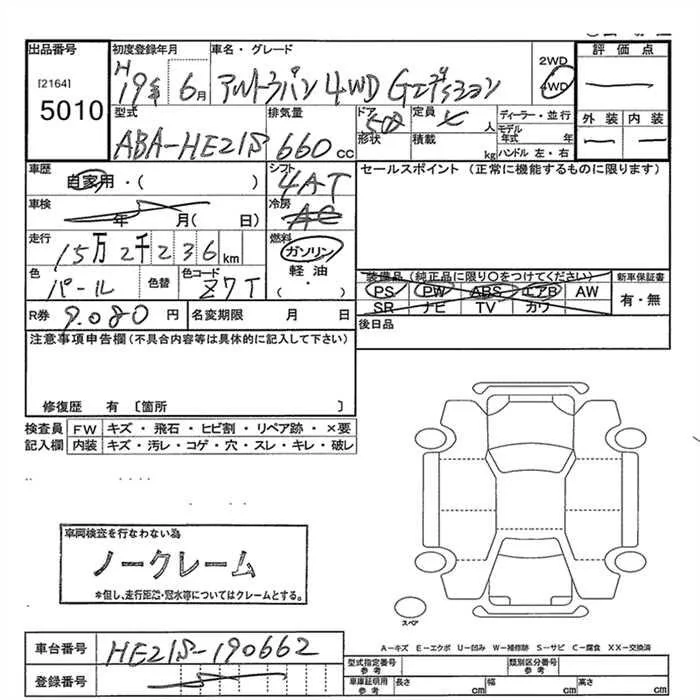 出品番号
[2164]
5010
初度登録年月
H 19年 6月
車名・グレード
アルトラパン 4WD Gエディション
2WD
4WD
評価点
外装 内装
型式
ABA-HE21S
排気量
660 cc
ドア
形状
定員
人
積載
kg
ディーラー・並行
モデル年式 年
ハンドル 左・右
車歴
自家用・( )
シフト
4AT
セールスポイント (正常に機能するものに限ります)
車検
年 月( 日)
冷房
AC
走行
15万2千236km
燃料
ガソリン
軽油
・
( )
色
パール
色替
色コード
Z7T
装備品(純正品に限り〇をつけてください)
PS PW ABS エアB AW
SR ナビ TV カワ
新車保証書
有・無
R券 9.080 円
名変期限 月 日
後日品
注意事項申告欄(不具合内容等は具体的に記入して下さい)
修復歴 有 〔箇所 〕
検査員 FW キズ・飛石・ヒビ割・リペア跡・×要
記入欄 内装 キズ・汚レ・コゲ・穴・スレ・キレ・破レ
車両検査を行なわない為
ノークレーム
*但し、走行距離・冠水等についてはクレームとする。
スペア
A-キズ E-エクボ U-凹み W-補修跡 S-サビ C-腐食 XX-交換済
車台番号 HE21S-190662
登録番号
型式指定番号
参考
類別区分番号
参考
車庫証明用
参考
長さ cm 幅 cm 高さ cm